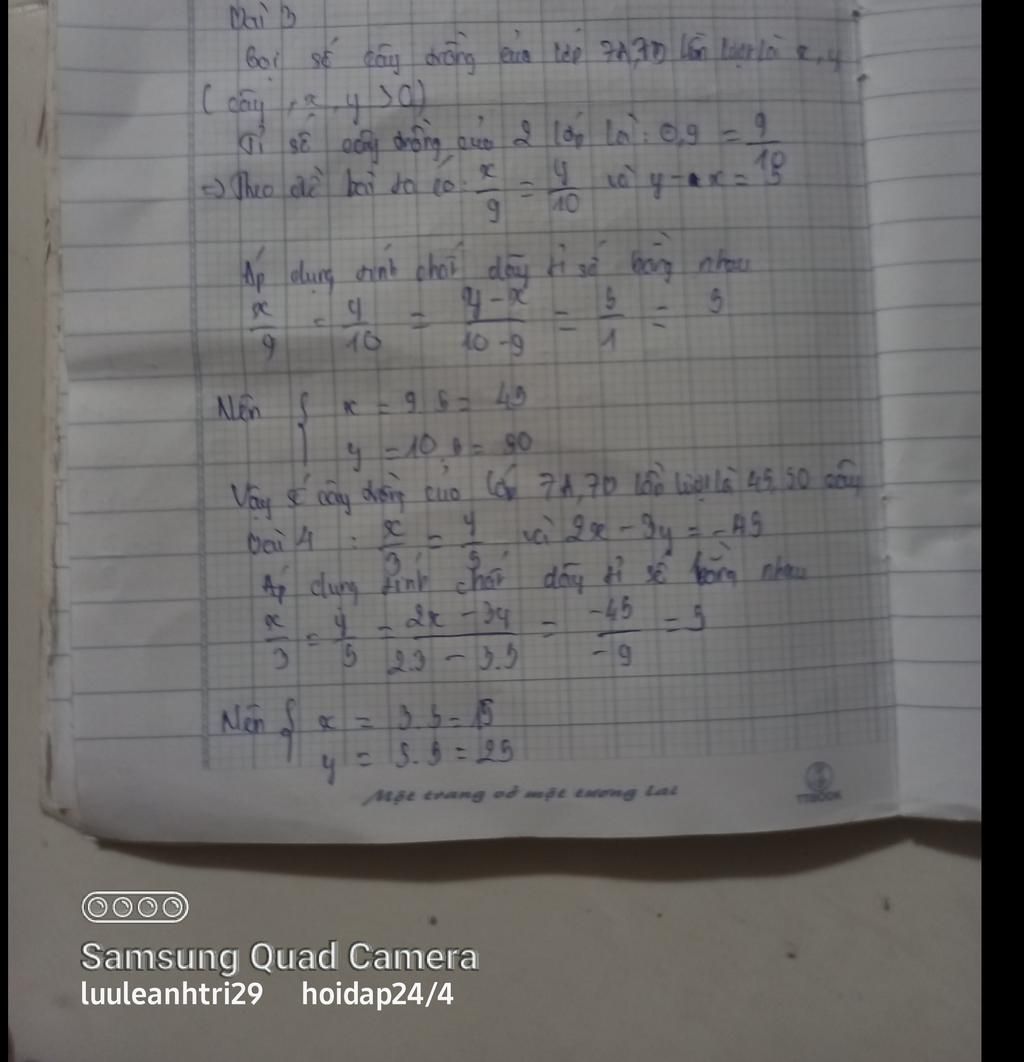 Bài 3
Gọi số cây trồng của lớp 7A, 7D lần lượt là x, y
( cây , x, y > 0)
Tỉ số cây trồng của 2 lớp là : 0,9 = 9/10
=> Theo đề bài ta có: x/9 = y/10 và y - x = 5
Áp dụng tính chất dãy tỉ số bằng nhau
x/9 = y/10 = y - x / 10 - 9 = 5/1 = 5
Nên { x = 9.5 = 45
y = 10.5 = 50
Vậy số cây trồng của lớp 7A, 7D lần lượt là 45, 50 cây
bài 4 : x/3 = y/5 và 2x - 3y = -45
Áp dụng tính chất dãy tỉ số bằng nhau
x/3 = y/5 = 2x - 3y / 2.3 - 3.5 = -45/-9 = 5
Nên { x = 3.5 = 15
y = 5.5 = 25
Một trang vở một tương lai
TTBOOK
Samsung Quad Camera
luuleanhtri29 hoidap24/4